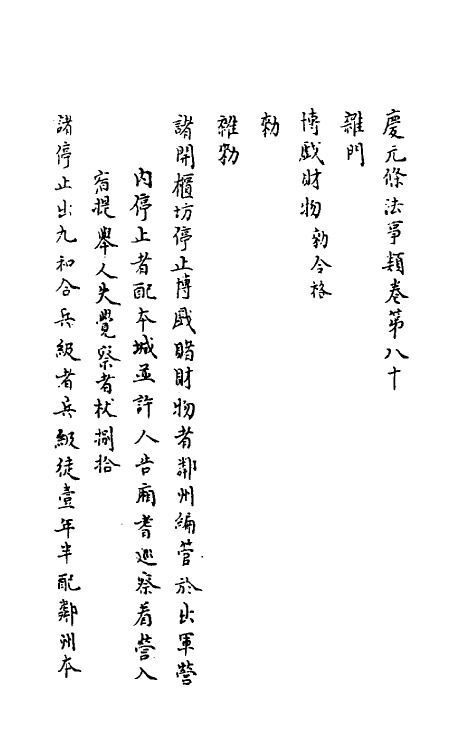 慶元條法事類卷第八十
雜門
博戲財物 勑令格
勑
雜勑
諸開櫃坊停止博戲賭財物者鄰州編管於出軍營
內停止者配本城並許人告廂耆巡察看營入
宿提舉人失覺察者杖捌拾
諸停止出九和合兵級者兵級徒壹年半配鄰州本